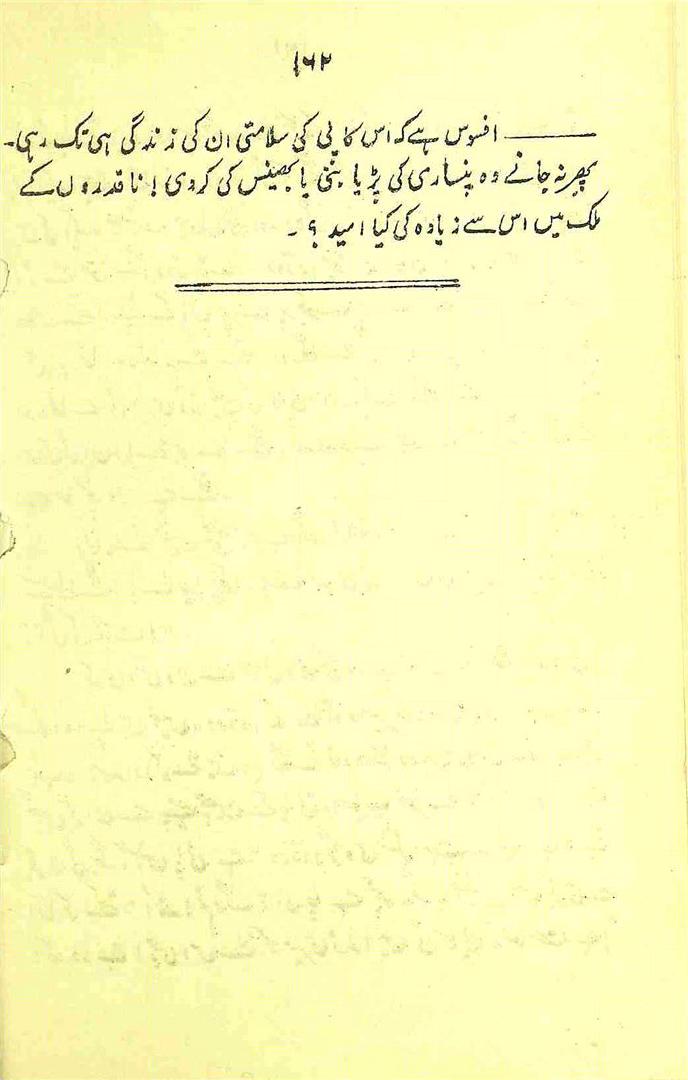 ۱۶۲
——— افسوس ہے کہ اس کاپی کی سلامتی ان کی زندگی ہی تک رہی۔
پھر نہ جانے وہ پنساری کی پڑیا بنی یا بھینس کی کروی! ناقدروں کے
ملک میں اس سے زیادہ کی کیا امید؟۔